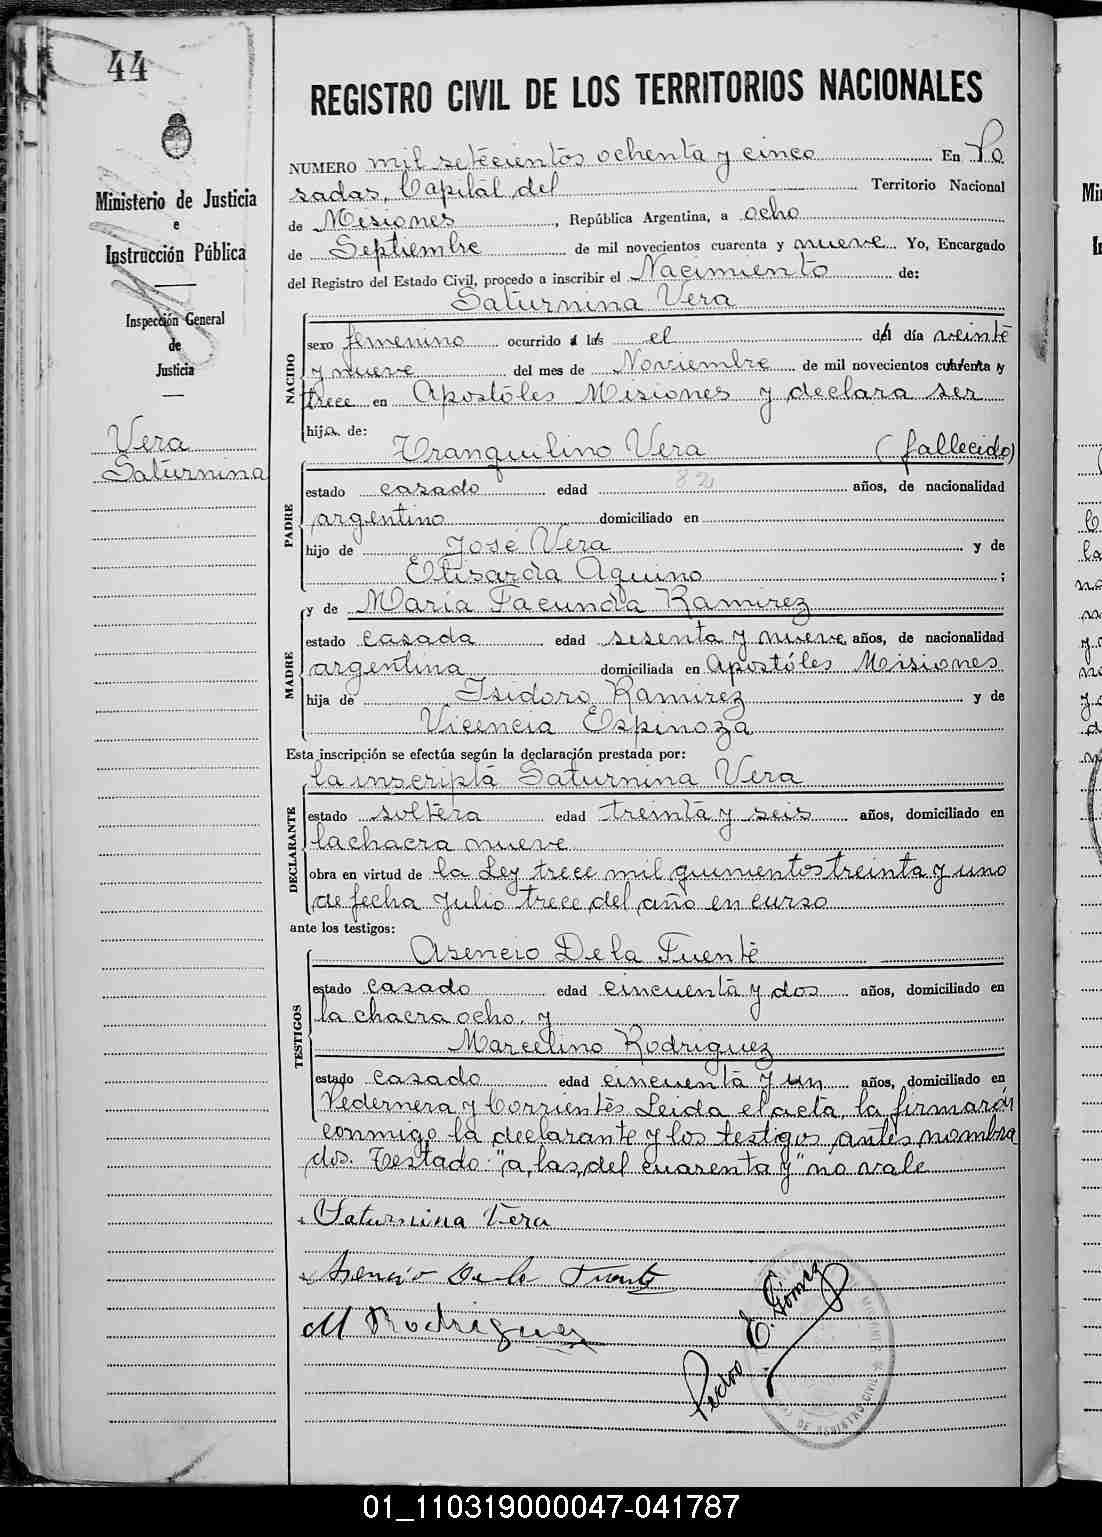 44
Ministerio de Justicia
e
Instrucción Pública
Inspección General
de
Justicia
Vera
Saturnina
REGISTRO CIVIL DE LOS TERRITORIOS NACIONALES
NUMERO mil setecientos ochenta y cinco En Po
sadas, Capital del Territorio Nacional
de Misiones, República Argentina, a ocho
de Septiembre de mil novecientos cuarenta y nueve Yo, Encargado
del Registro del Estado Civil, procedo a inscribir el Nacimiento de:
Saturnina Vera
NACIDO
sexo femenino ocurrido a las el del día veinte
y nueve del mes de Noviembre de mil novecientos cuarenta y
trece en Apostóles Misiones y declara ser
hija de:
Tranquilino Vera (fallecido)
PADRE
estado casado edad 82 años, de nacionalidad
argentino domiciliado en
hijo de José Vera y de
Elisarda Aquino ;
y de María Facunda Ramirez
MADRE
estado casada edad sesenta y nueve años, de nacionalidad
argentina domiciliada en Apostóles Misiones
hija de Isidoro Ramirez y de
Vicencia Espinoza
Esta inscripción se efectúa según la declaración prestada por:
la inscripta Saturnina Vera
DECLARANTE
estado soltera edad treinta y seis años, domiciliado en
la chacra nueve
obra en virtud de la Ley trece mil quinientos treinta y uno
de fecha Julio trece del año en curso
ante los testigos:
Asencio De la Fuente
TESTIGOS
estado casado edad cincuenta y dos años, domiciliado en
la chacra ocho. y
Marcelino Rodriguez
estado casado edad cincuenta y un años, domiciliado en
Pedernera y Corrientes Leida el acta, la firmarón
conmigo la declarante y los testigos antes nombra
dos. Testado: "a, las, del cuarenta y" no vale
Saturnina Vera
Asencio De la Fuente
M Rodriguez
Pedro E. Gómez
DE REGISTRO CIVIL
Mi
01_110319000047-041787